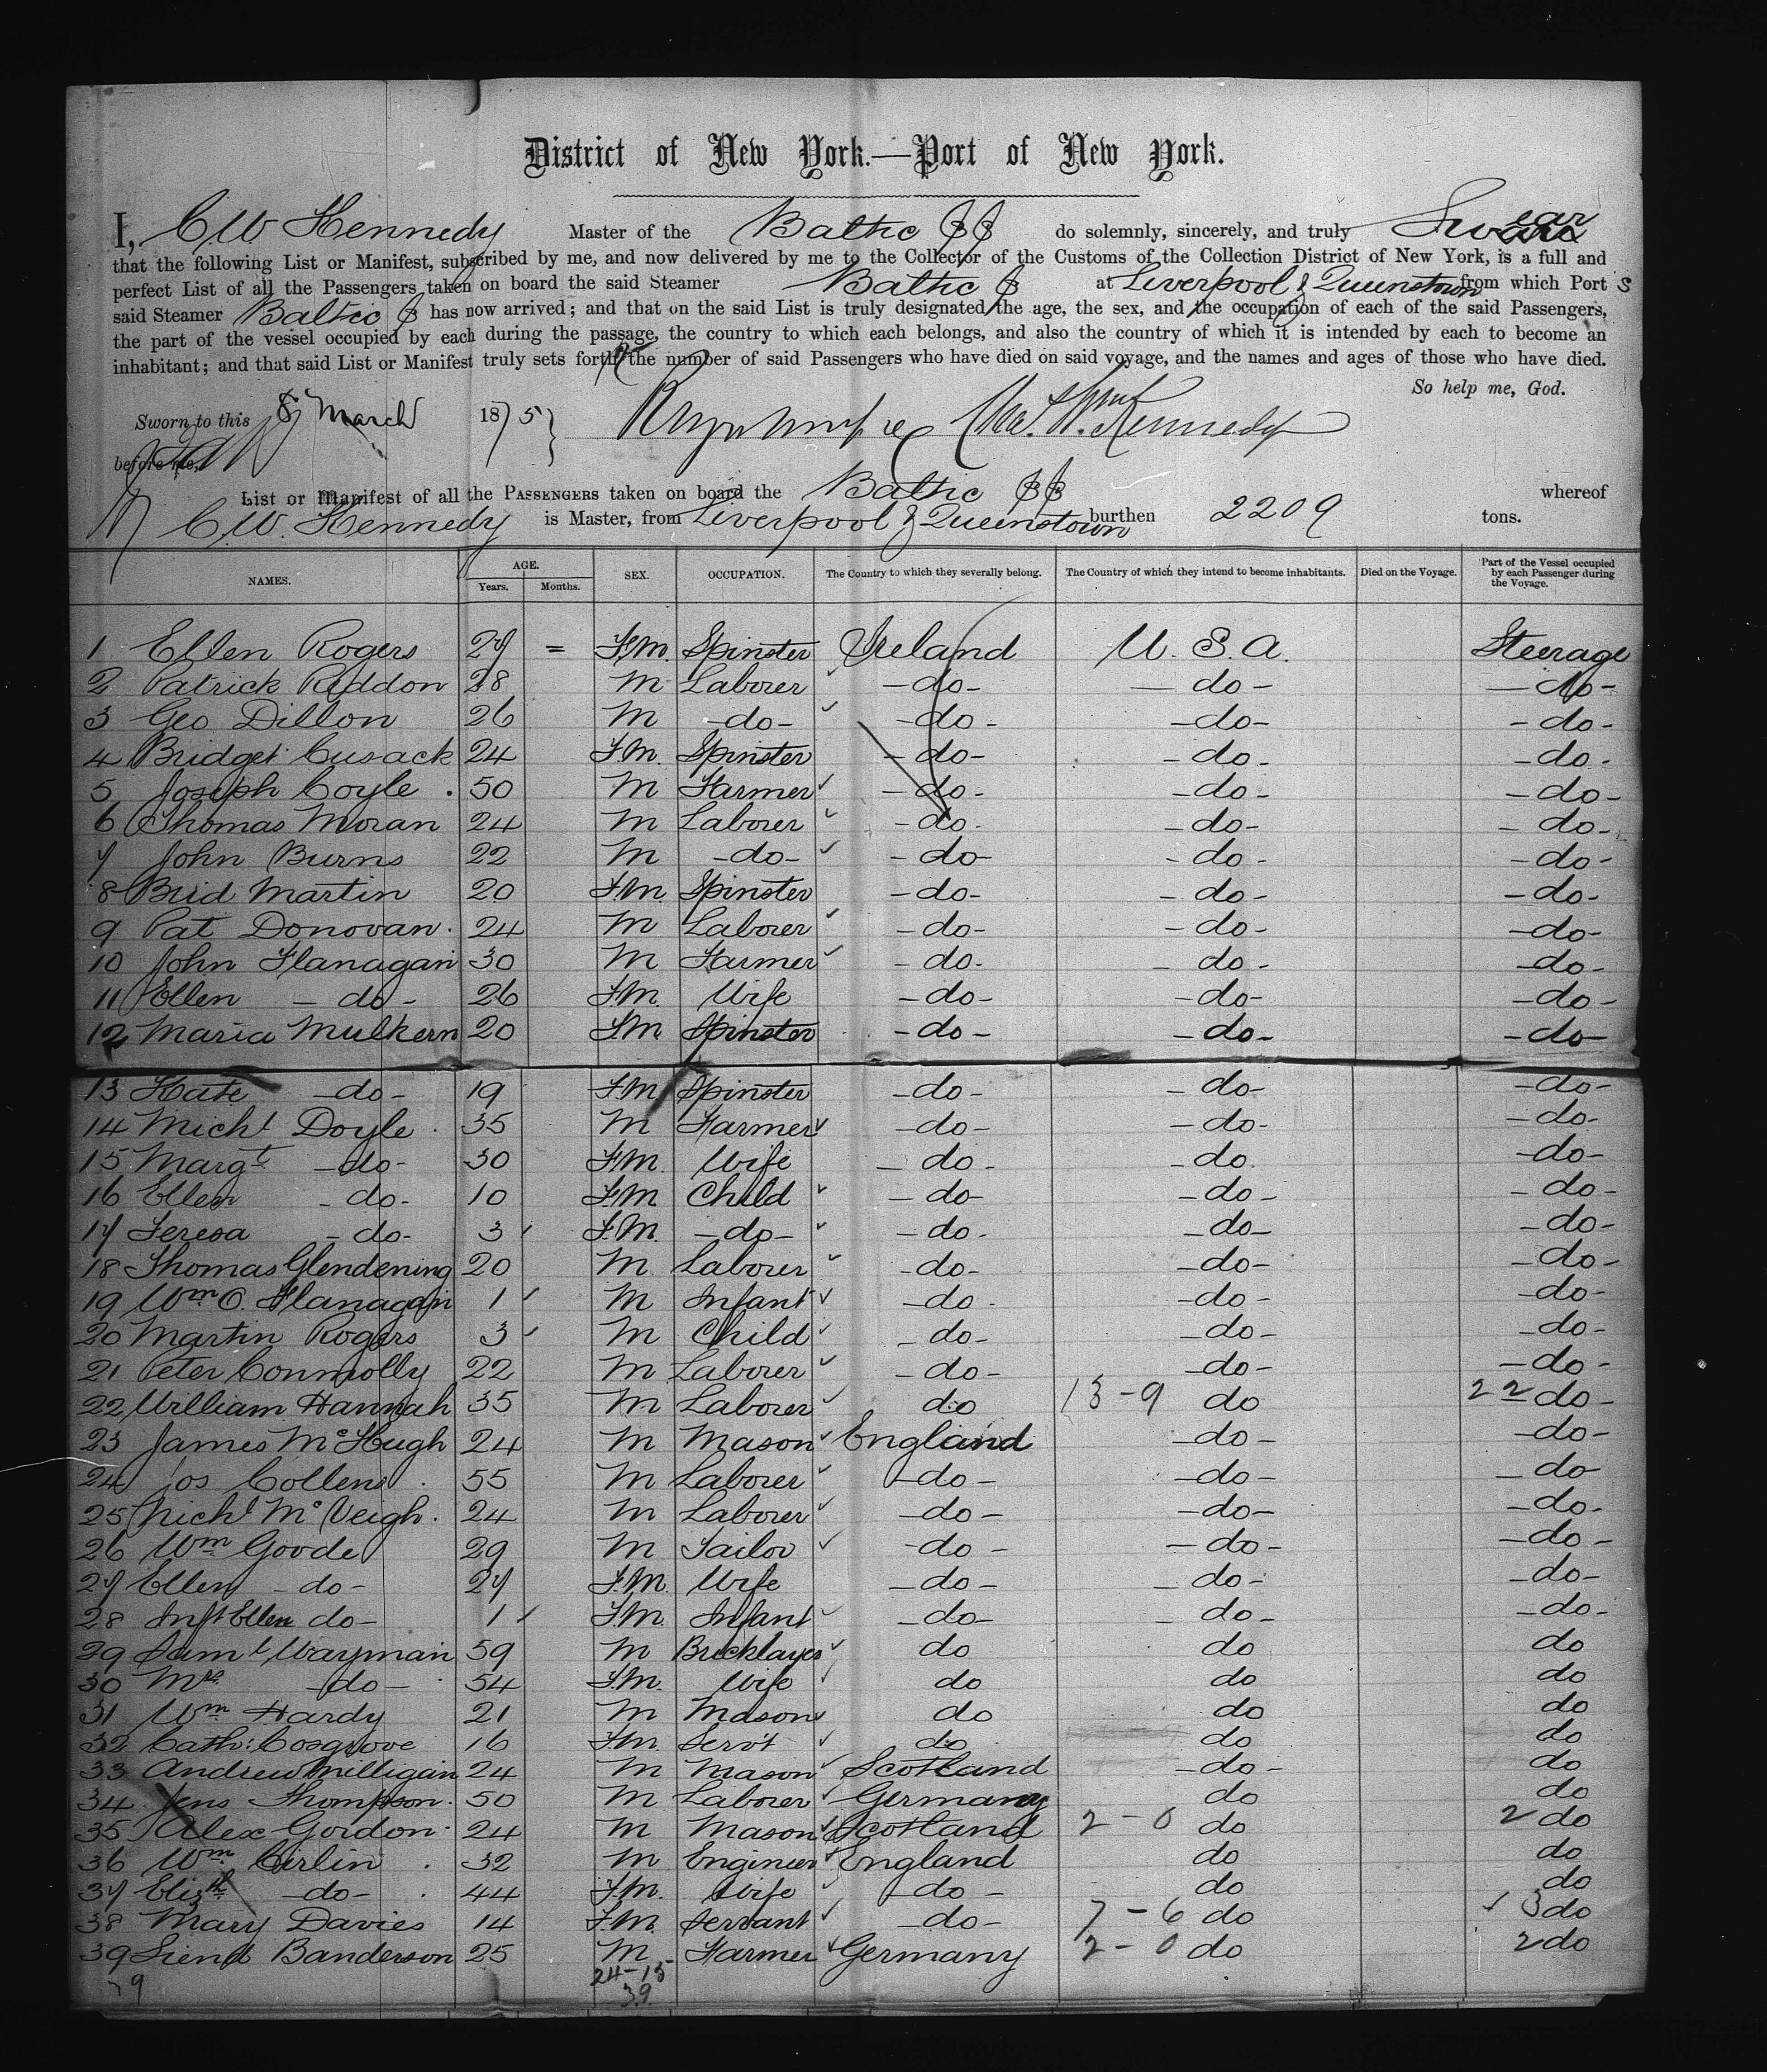 District of New York.—Port of New York.
I, C W Kennedy Master of the Baltic SS do solemnly, sincerely, and truly Swear
that the following List or Manifest, subscribed by me, and now delivered by me to the Collector of the Customs of the Collection District of New York, is a full and
perfect List of all the Passengers taken on board the said Steamer Baltic S at Liverpool & Queenstown from which Port s
said Steamer Baltic S has now arrived; and that on the said List is truly designated the age, the sex, and the occupation of each of the said Passengers,
the part of the vessel occupied by each during the passage, the country to which each belongs, and also the country of which it is intended by each to become an
inhabitant; and that said List or Manifest truly sets forth the number of said Passengers who have died on said voyage, and the names and ages of those who have died.
So help me, God.
Sworn to this 8 March 1875
Kennedy
before me,
List or Manifest of all the PASSENGERS taken on board the Baltic SS whereof
C.W. Kennedy is Master, from Liverpool & Queenstown burthen 2209 tons.
NAMES. AGE. Years. Months. SEX. OCCUPATION. The Country to which they severally belong. The Country of which they intend to become inhabitants. Died on the Voyage. Part of the Vessel occupied by each Passenger during the Voyage.
1 Ellen Rogers 27 = F.M. Spinster Ireland U.S.A. Steerage
2 Patrick Riddon 28 M Laborer -do- -do- -do-
3 Geo Dillon 26 M -do- -do- -do- -do-
4 Bridget Cusack 24 F.M. Spinster -do- -do- -do-
5 Joseph Coyle 50 M Farmer -do- -do- -do-
6 Thomas Moran 24 M Laborer -do- -do- -do-
7 John Burns 22 M -do- -do- -do- -do-
8 Brid Martin 20 F.M. Spinster -do- -do- -do-
9 Pat Donovan 24 M Laborer -do- -do- -do-
10 John Flanagan 30 M Farmer -do- -do- -do-
11 Ellen -do- 26 F.M. Wife -do- -do- -do-
12 Maria Mulkern 20 F.M. Spinster -do- -do- -do-
13 Kate -do- 19 F.M. Spinster -do- -do- -do-
14 Michl Doyle 35 M Farmer -do- -do- -do-
15 Margt -do- 30 F.M. Wife -do- -do- -do-
16 Ellen -do- 10 F.M. Child -do- -do- -do-
17 Teresa -do- 3 F.M. -do- -do- -do- -do-
18 Thomas Glendening 20 M Laborer -do- -do- -do-
19 Wm O. Flanagan 1 M Infant -do- -do- -do-
20 Martin Rogers 3 M Child -do- -do- -do-
21 Peter Connolly 22 M Laborer -do- -do- -do-
22 William Hannah 35 M Laborer do 13-9 do 22 do-
23 James McHugh 24 M Mason England -do- -do-
24 Jos Collens 55 M Laborer -do- -do- -do
25 Michl McVeigh 24 M Laborer -do- -do- -do-
26 Wm Goode 29 M Tailor -do- -do- -do-
27 Ellen -do- 27 F.M. Wife -do- -do- -do-
28 Inft Ellen do- 1 F.M. Infant -do- -do- -do-
29 Saml Wayman 59 M Bricklayer do do do
30 Mrs -do- 54 F.M. Wife do do do
31 Wm Hardy 21 M Mason do do do
32 Cath: Cosgrove 16 F.M. Serv't do do do
33 Andrew Milligan 24 M Mason Scotland -do- do
34 Jens Thompson 50 M Laborer Germany do do
35 Alex Gordon 24 M Mason Scotland 2-0 do 2 do
36 Wm Cirlin 32 M Engineer England do do
37 Elizth -do- 44 F.M. Wife -do- do do
38 Mary Davies 14 F.M. Servant -do- 7-6 do 13 do
39 Siend Banderson 25 M Farmer Germany 2-0 do 2 do
24-15
39